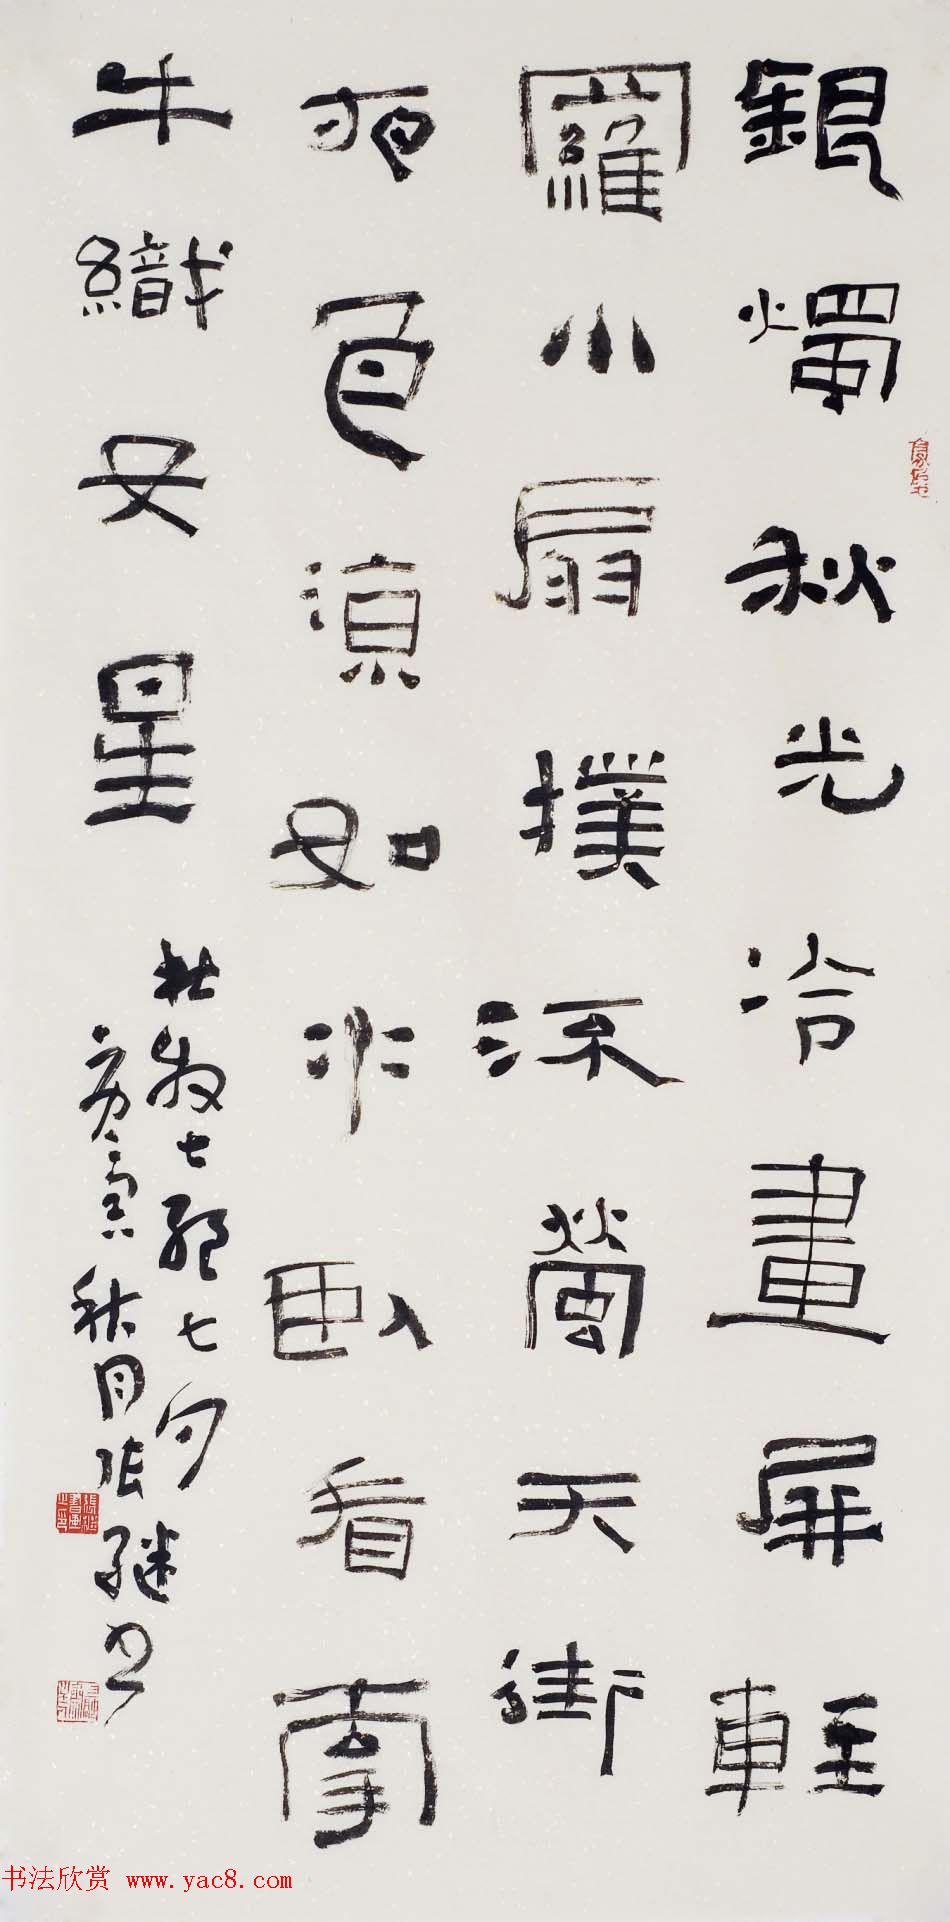 銀燭秋光冷畫屏輕
羅小扇撲流螢天街
夜色涼如水臥看牽
牛織女星
杜牧七絕七夕
秋月張繼書
书法欣赏 www.yac8.com